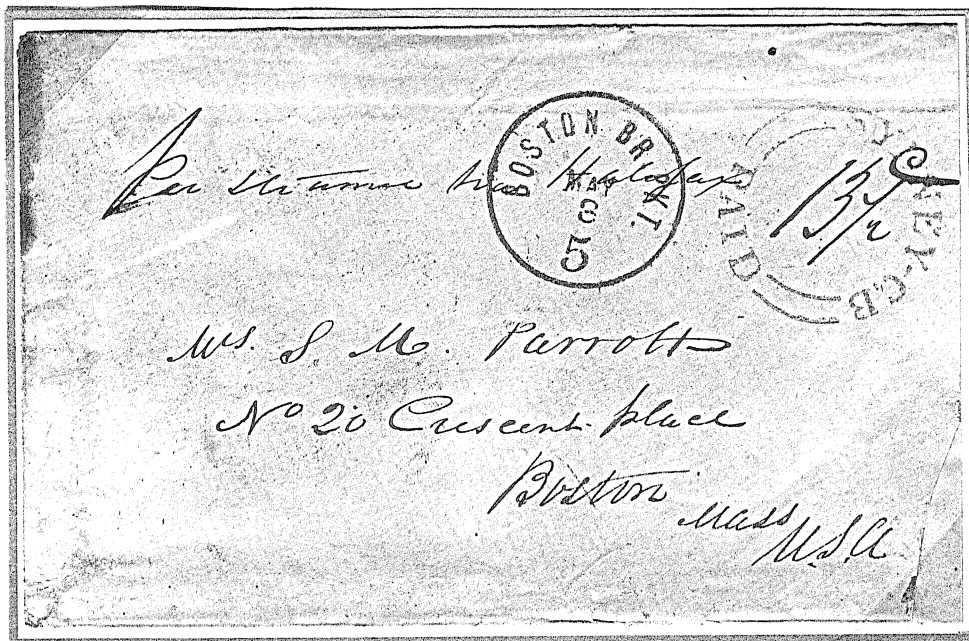 Per steamer via Halifax
BOSTON BR. PKT.
MAY
8
5
SYDNEY-C.B
PAID
13½ C
Mrs. S. M. Parrott
No 20 Crescent place
Boston
Mass
U.S.A